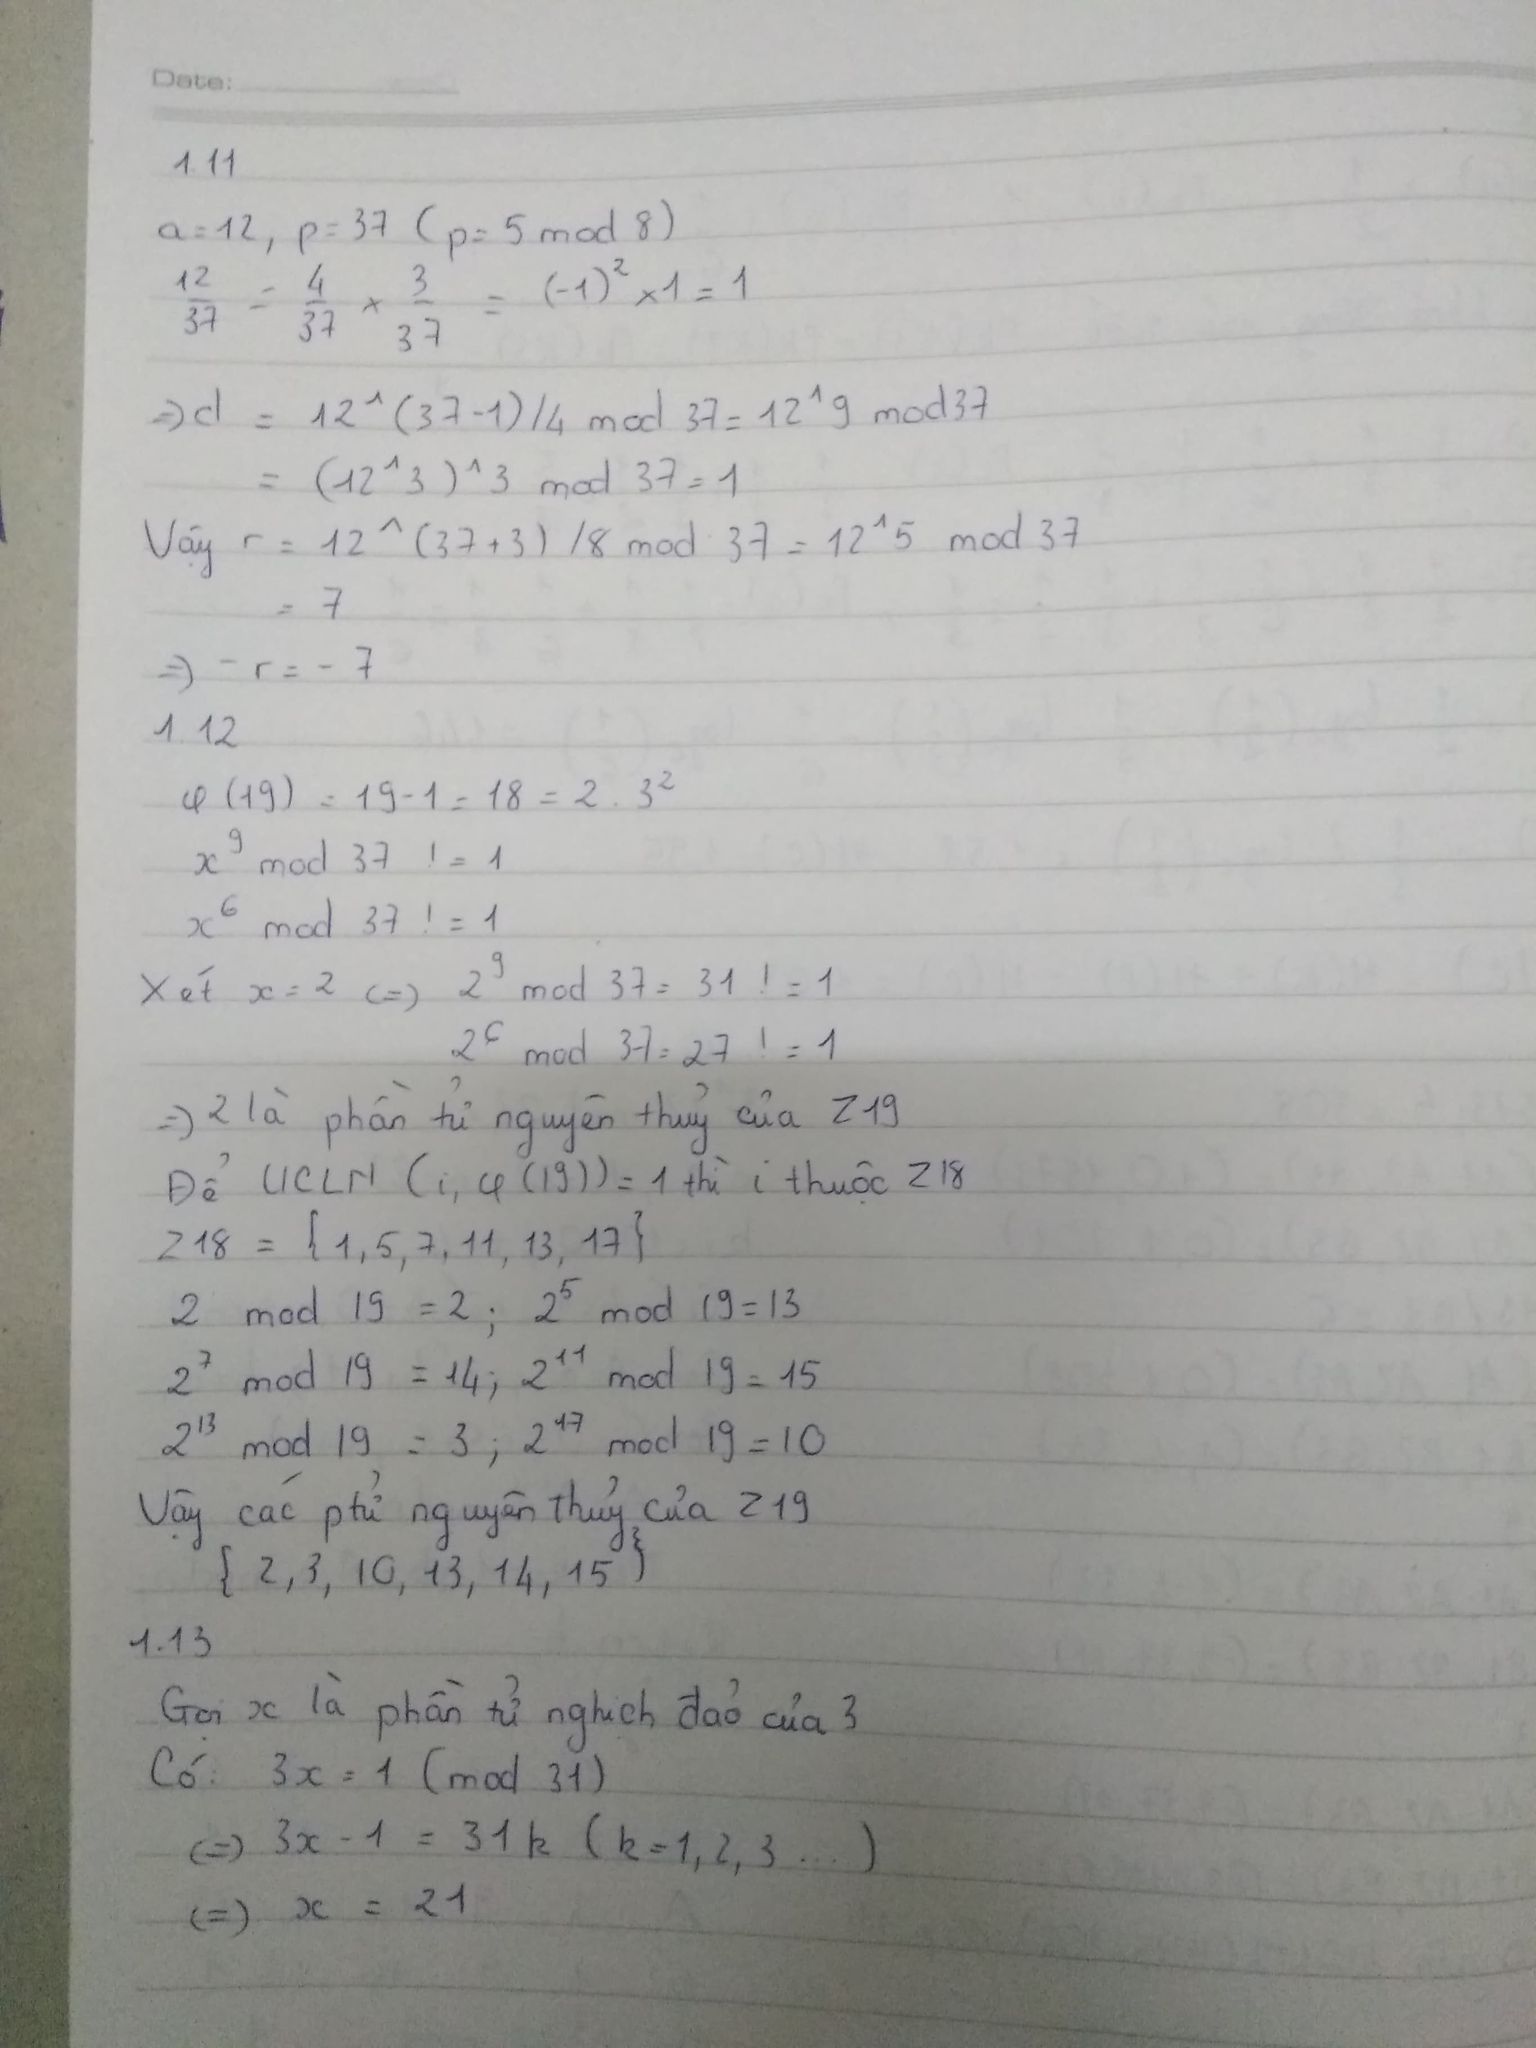 Date:
1.11
a=12, p=37 (p=5 mod 8)
12/37 = 4/37 × 3/37 = (-1)² ×1 = 1
=> d = 12^(37-1)/4 mod 37 = 12^9 mod 37
= (12^3)^3 mod 37 = 1
Vậy r = 12^(37+3)/8 mod 37 = 12^5 mod 37
= 7
=> -r = -7
1.12
φ(19) = 19-1 = 18 = 2.3²
x⁹ mod 37 != 1
x⁶ mod 37 != 1
Xét x=2 (=) 2⁹ mod 37 = 31 != 1
2⁶ mod 37 = 27 != 1
=> 2 là phần tử nguyên thuỷ của Z19
Để UCLN (i, φ(19)) = 1 thì i thuộc Z18
Z18 = {1, 5, 7, 11, 13, 17}
2 mod 19 = 2; 2⁵ mod 19 = 13
2⁷ mod 19 = 14; 2¹¹ mod 19 = 15
2¹³ mod 19 = 3; 2¹⁷ mod 19 = 10
Vậy các ptử nguyên thủy của Z19
{2, 3, 10, 13, 14, 15}
1.13
Gọi x là phần tử nghịch đảo của 3
Có: 3x = 1 (mod 31)
(=) 3x - 1 = 31k (k=1, 2, 3 ...)
(=) x = 21